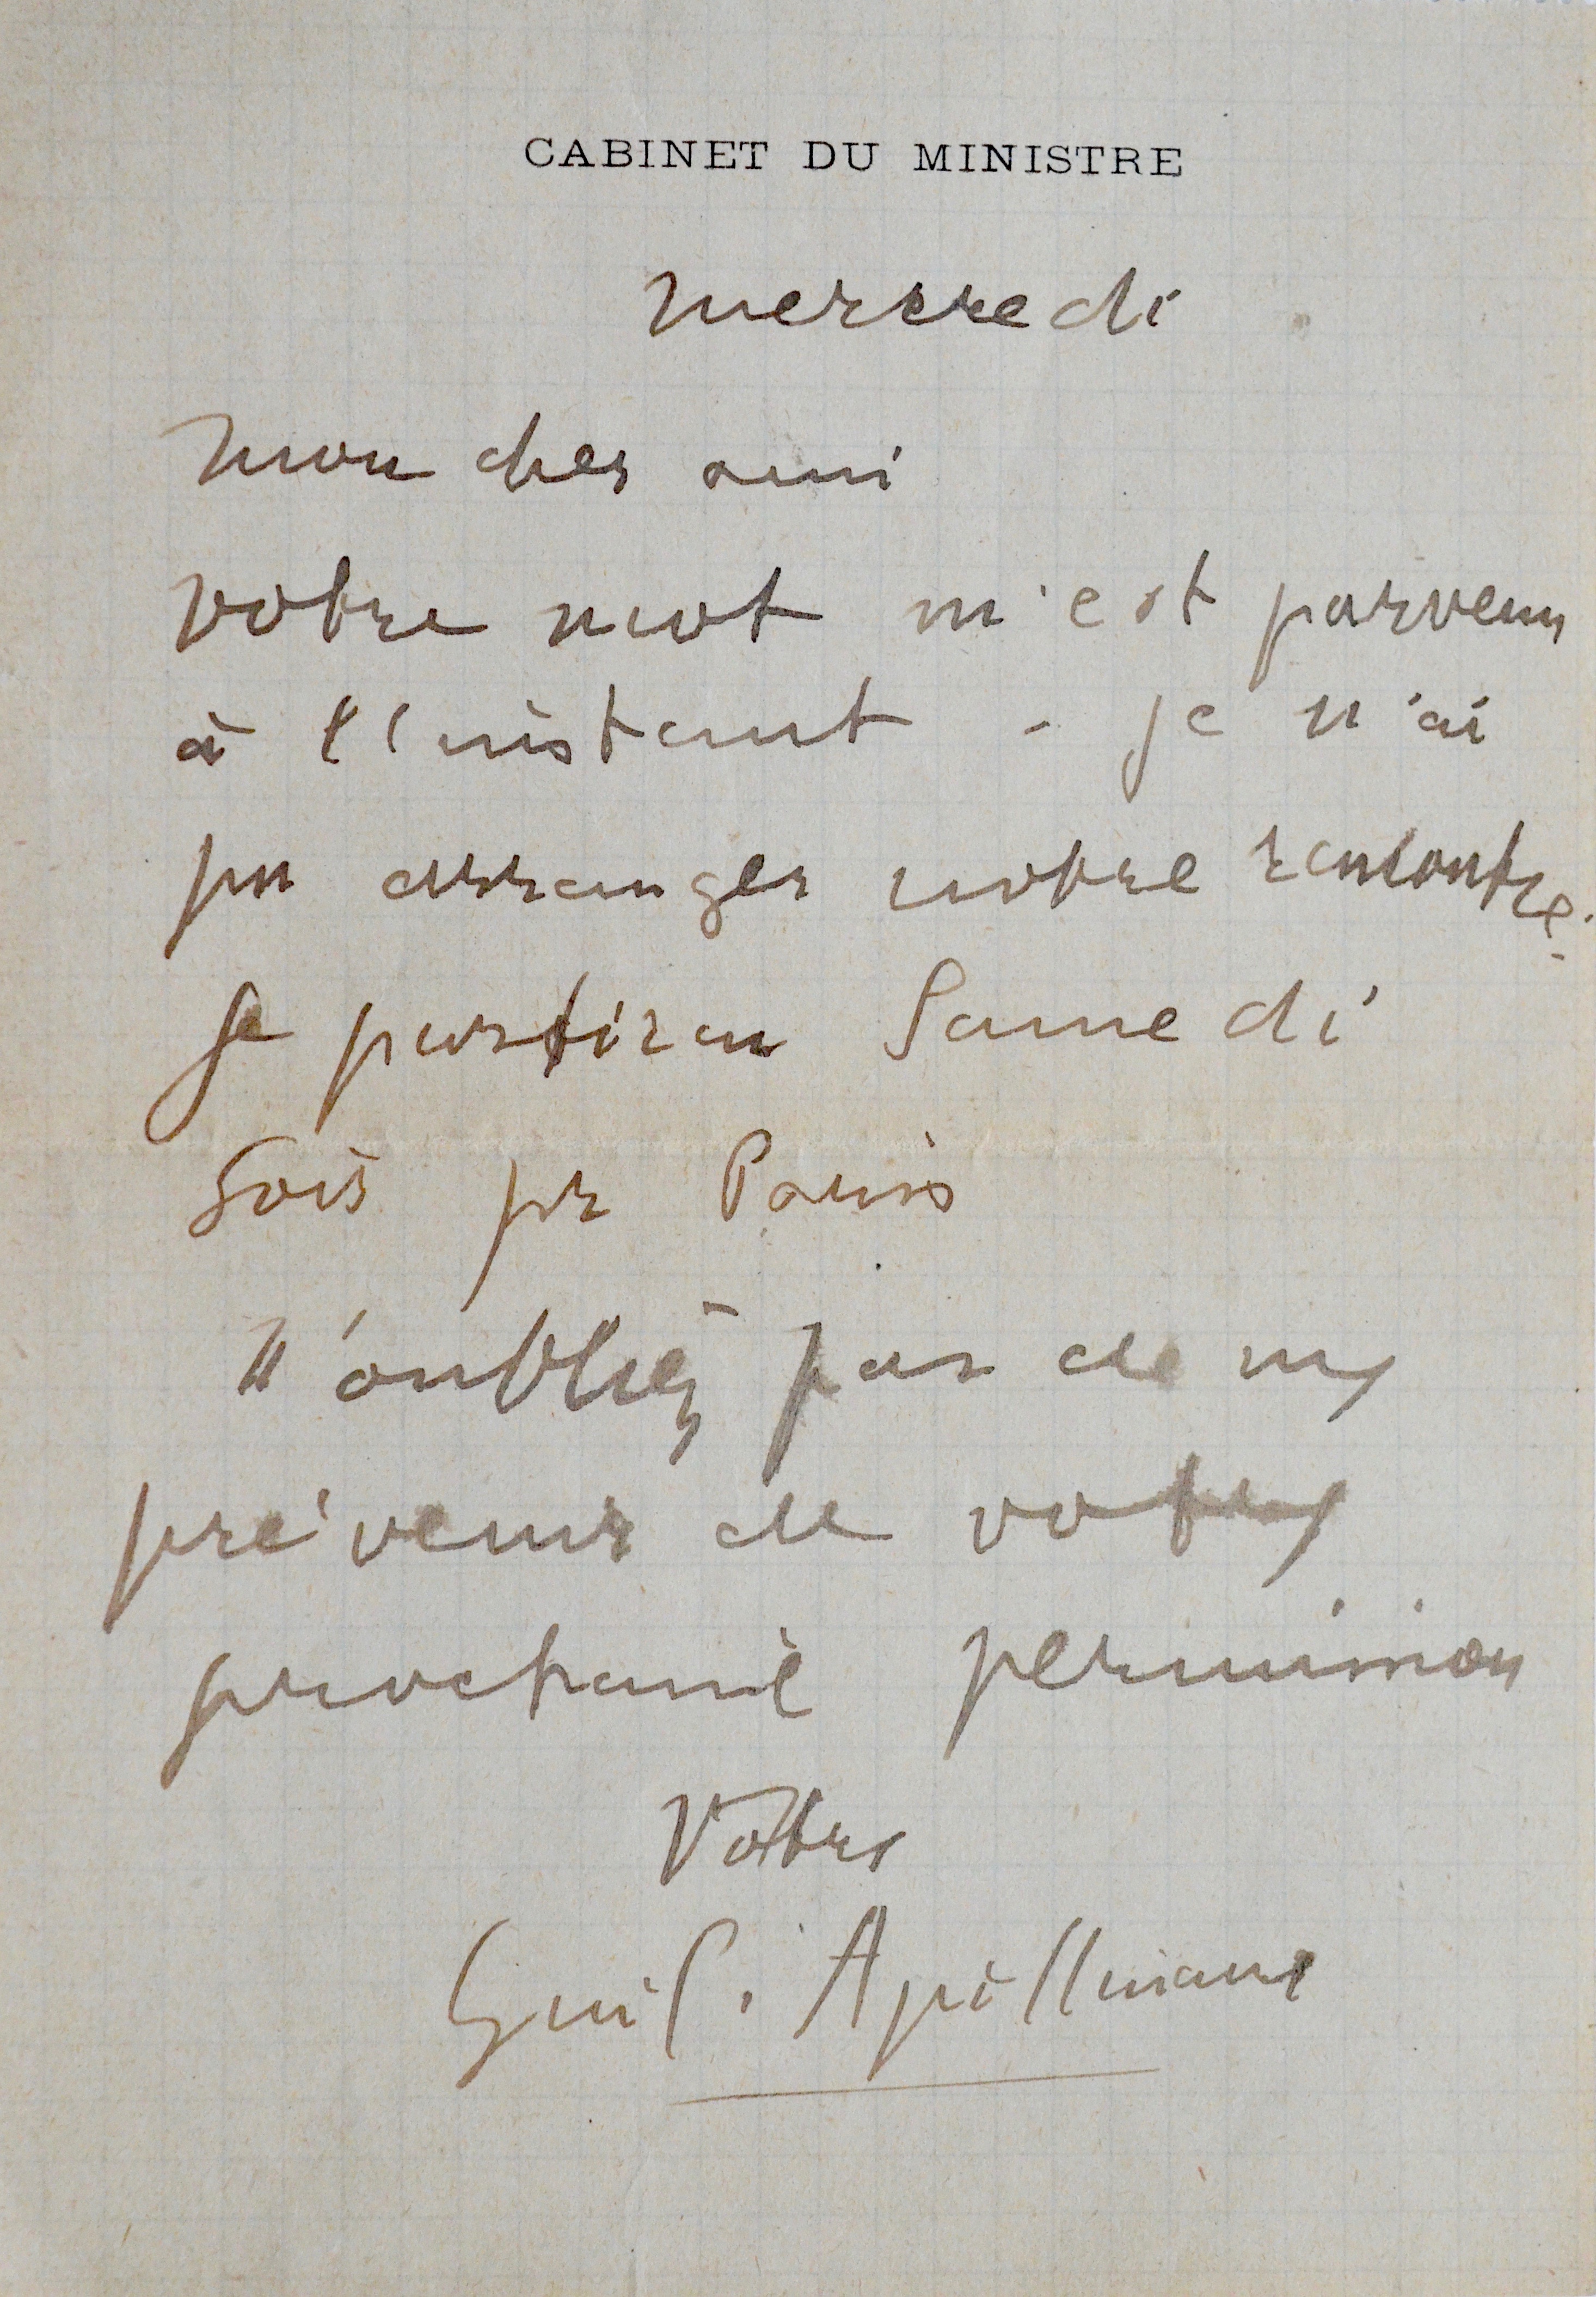 CABINET DU MINISTRE
mercredi
Mon cher ami
votre mot m'est parvenu
à l'instant - je n'ai
pu arranger notre rencontre.
Je partirai Samedi
Soir pr Paris
N'oubliez pas de me
prévenir de votre
prochaine permission
Votre
Guil. Apollinaire